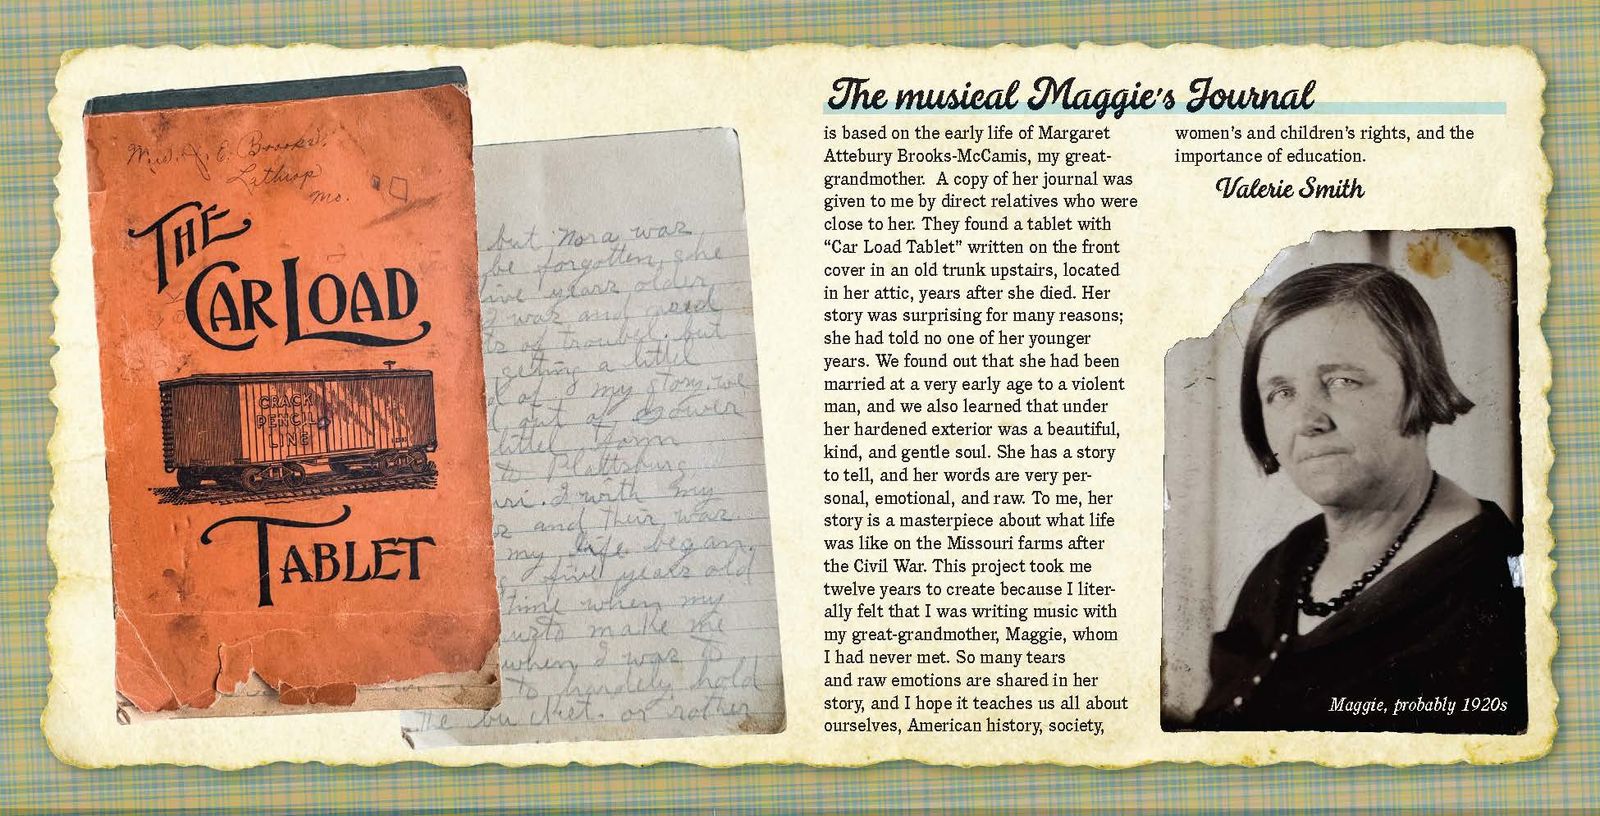 Mrs. J. E. Brooks.
Lathrop
Mo.
THE
CAR LOAD
CRACK
PENCIL
LINE
TABLET
but Nora was
be forgotten, she
five years older
I was and
of trouble. but
getting a littel
of my story. we
out of
littel farm
to Plattsburg
I with my
and their was
my life began
five years old
time when my
to make me
when I was
to hardely hold
the bucket. or rather
The musical Maggie's Journal
is based on the early life of Margaret
Attebury Brooks-McCamis, my great-
grandmother.  A copy of her journal was
given to me by direct relatives who were
close to her. They found a tablet with
“Car Load Tablet” written on the front
cover in an old trunk upstairs, located
in her attic, years after she died. Her
story was surprising for many reasons;
she had told no one of her younger
years. We found out that she had been
married at a very early age to a violent
man, and we also learned that under
her hardened exterior was a beautiful,
kind, and gentle soul. She has a story
to tell, and her words are very per-
sonal, emotional, and raw. To me, her
story is a masterpiece about what life
was like on the Missouri farms after
the Civil War. This project took me
twelve years to create because I liter-
ally felt that I was writing music with
my great-grandmother, Maggie, whom
I had never met. So many tears
and raw emotions are shared in her
story, and I hope it teaches us all about
ourselves, American history, society,
women's and children's rights, and the
importance of education.
Valerie Smith
Maggie, probably 1920s